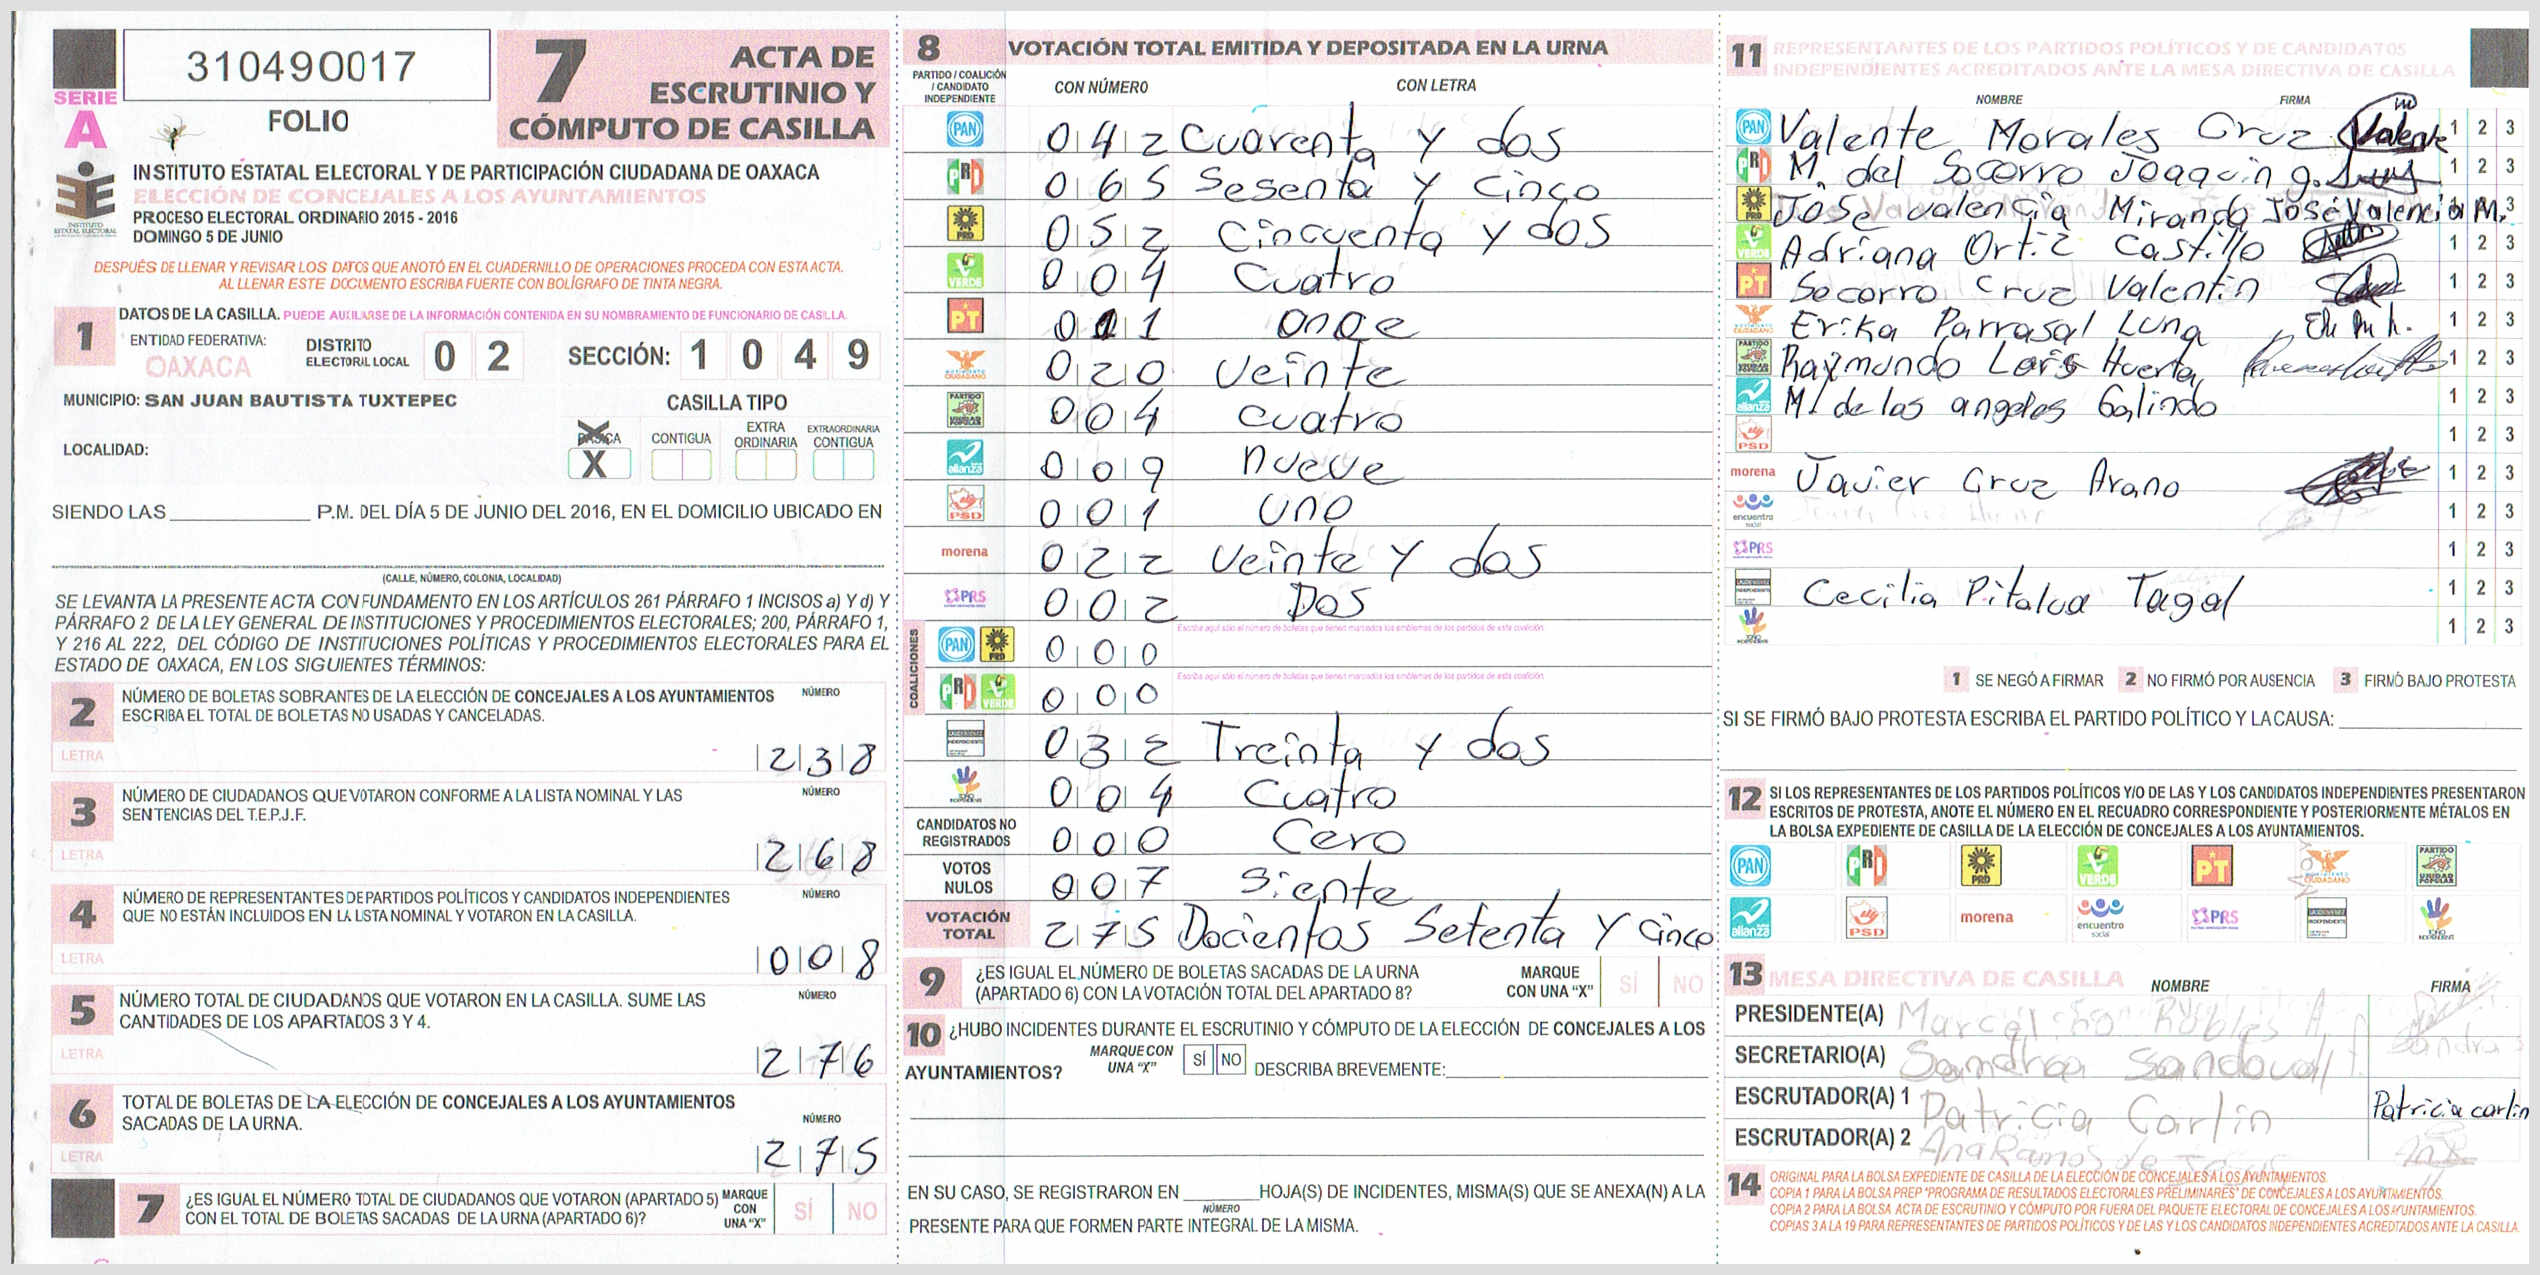 310490017
FOLIO
SERIE
A
7 ACTA DE
ESCRUTINIO Y
CÓMPUTO DE CASILLA
INSTITUTO ESTATAL ELECTORAL Y DE PARTICIPACIÓN CIUDADANA DE OAXACA
ELECCIÓN DE CONCEJALES A LOS AYUNTAMIENTOS
PROCESO ELECTORAL ORDINARIO 2015 - 2016
DOMINGO 5 DE JUNIO
DESPUÉS DE LLENAR Y REVISAR LOS DATOS QUE ANOTÓ EN EL CUADERNILLO DE OPERACIONES PROCEDA CON ESTA ACTA.
AL LLENAR ESTE DOCUMENTO ESCRIBA FUERTE CON BOLÍGRAFO DE TINTA NEGRA.
1 DATOS DE LA CASILLA. PUEDE AUXILIARSE DE LA INFORMACIÓN CONTENIDA EN SU NOMBRAMIENTO DE FUNCIONARIO DE CASILLA.
ENTIDAD FEDERATIVA: OAXACA DISTRITO ELECTORAL LOCAL 0 2 SECCIÓN: 1 0 4 9
MUNICIPIO: SAN JUAN BAUTISTA TUXTEPEC
CASILLA TIPO
BÁSICA CONTIGUA EXTRA ORDINARIA EXTRAORDINARIA CONTIGUA
LOCALIDAD:
X
SIENDO LAS P.M. DEL DÍA 5 DE JUNIO DEL 2016, EN EL DOMICILIO UBICADO EN
(CALLE, NÚMERO, COLONIA, LOCALIDAD)
SE LEVANTA LA PRESENTE ACTA CON FUNDAMENTO EN LOS ARTÍCULOS 261 PÁRRAFO 1 INCISOS a) Y d) Y
PÁRRAFO 2 DE LA LEY GENERAL DE INSTITUCIONES Y PROCEDIMIENTOS ELECTORALES; 200, PÁRRAFO 1,
Y 216 AL 222, DEL CÓDIGO DE INSTITUCIONES POLÍTICAS Y PROCEDIMIENTOS ELECTORALES PARA EL
ESTADO DE OAXACA, EN LOS SIGUIENTES TÉRMINOS:
2 NÚMERO DE BOLETAS SOBRANTES DE LA ELECCIÓN DE CONCEJALES A LOS AYUNTAMIENTOS NÚMERO
ESCRIBA EL TOTAL DE BOLETAS NO USADAS Y CANCELADAS.
LETRA 238
3 NÚMERO DE CIUDADANOS QUE VOTARON CONFORME A LA LISTA NOMINAL Y LAS NÚMERO
SENTENCIAS DEL T.E.P.J.F.
LETRA 268
4 NÚMERO DE REPRESENTANTES DE PARTIDOS POLÍTICOS Y CANDIDATOS INDEPENDIENTES NÚMERO
QUE NO ESTÁN INCLUIDOS EN LA LISTA NOMINAL Y VOTARON EN LA CASILLA.
LETRA 008
5 NÚMERO TOTAL DE CIUDADANOS QUE VOTARON EN LA CASILLA. SUME LAS NÚMERO
CANTIDADES DE LOS APARTADOS 3 Y 4.
LETRA 276
6 TOTAL DE BOLETAS DE LA ELECCIÓN DE CONCEJALES A LOS AYUNTAMIENTOS
SACADAS DE LA URNA. NÚMERO
LETRA 275
7 ¿ES IGUAL EL NÚMERO TOTAL DE CIUDADANOS QUE VOTARON (APARTADO 5)
CON EL TOTAL DE BOLETAS SACADAS DE LA URNA (APARTADO 6)? MARQUE CON UNA "X" SÍ NO
8 VOTACIÓN TOTAL EMITIDA Y DEPOSITADA EN LA URNA
PARTIDO / COALICIÓN / CANDIDATO INDEPENDIENTE CON NÚMERO CON LETRA
PAN 042 Cuarenta y dos
PRI 065 Sesenta y Cinco
PRD 052 Cincuenta y dos
VERDE 004 Cuatro
PT 011 once
MOVIMIENTO CIUDADANO 020 veinte
PARTIDO UNIDAD POPULAR 004 cuatro
alianza 009 nueve
PSD 001 uno
morena 022 veinte y dos
PRS 002 Dos
COALICIONES
Escriba aquí sólo el número de boletas que tienen marcados los emblemas de los partidos de esta coalición.
PAN PRD 000
Escriba aquí sólo el número de boletas que tienen marcados los emblemas de los partidos de esta coalición.
PRI VERDE 000
INDEPENDIENTE 032 Treinta y dos
004 Cuatro
CANDIDATOS NO REGISTRADOS 000 Cero
VOTOS NULOS 007 Siente
VOTACIÓN TOTAL 275 Docientos Setenta Y Cinco
9 ¿ES IGUAL EL NÚMERO DE BOLETAS SACADAS DE LA URNA
(APARTADO 6) CON LA VOTACIÓN TOTAL DEL APARTADO 8? MARQUE CON UNA "X" SÍ NO
10 ¿HUBO INCIDENTES DURANTE EL ESCRUTINIO Y CÓMPUTO DE LA ELECCIÓN DE CONCEJALES A LOS
AYUNTAMIENTOS? MARQUE CON UNA "X" SÍ NO DESCRIBA BREVEMENTE:
EN SU CASO, SE REGISTRARON EN HOJA(S) DE INCIDENTES, MISMA(S) QUE SE ANEXA(N) A LA
NÚMERO
PRESENTE PARA QUE FORMEN PARTE INTEGRAL DE LA MISMA.
11 REPRESENTANTES DE LOS PARTIDOS POLÍTICOS Y DE CANDIDATOS
INDEPENDIENTES ACREDITADOS ANTE LA MESA DIRECTIVA DE CASILLA
NOMBRE FIRMA
PAN Valente Morales Cruz Valente 1 2 3
PRI M. del Socorro Joaquin g. 1 2 3
PRD José Valencia Miranda José Valencia M. 3
VERDE Adriana Ortiz Castillo 1 2 3
PT Socorro Cruz Valentin 1 2 3
CIUDADANO Erika Parrasal Luna 1 2 3
PARTIDO UNIDAD POPULAR Raymundo Huerta 1 2 3
alianza M. de los angeles Galindo 1 2 3
PSD 1 2 3
morena Javier Cruz Arano 1 2 3
encuentro social 1 2 3
PRS 1 2 3
INDEPENDIENTE Cecilia Pitalua Tagal 1 2 3
1 2 3
1 SE NEGÓ A FIRMAR 2 NO FIRMÓ POR AUSENCIA 3 FIRMÓ BAJO PROTESTA
SI SE FIRMÓ BAJO PROTESTA ESCRIBA EL PARTIDO POLÍTICO Y LA CAUSA:
12 SI LOS REPRESENTANTES DE LOS PARTIDOS POLÍTICOS Y/O DE LAS Y LOS CANDIDATOS INDEPENDIENTES PRESENTARON
ESCRITOS DE PROTESTA, ANOTE EL NÚMERO EN EL RECUADRO CORRESPONDIENTE Y POSTERIORMENTE MÉTALOS EN
LA BOLSA EXPEDIENTE DE CASILLA DE LA ELECCIÓN DE CONCEJALES A LOS AYUNTAMIENTOS.
PAN PRI PRD VERDE PT CIUDADANO PARTIDO UNIDAD POPULAR
alianza PSD morena encuentro social PRS INDEPENDIENTE
13 MESA DIRECTIVA DE CASILLA NOMBRE FIRMA
PRESIDENTE(A) Robles A.
SECRETARIO(A) Sandra Sandoval Sandra
ESCRUTADOR(A) 1 Patricia Carlin Patricia carlin
ESCRUTADOR(A) 2 Ana Ramos de
14 ORIGINAL PARA LA BOLSA EXPEDIENTE DE CASILLA DE LA ELECCIÓN DE CONCEJALES A LOS AYUNTAMIENTOS.
COPIA 1 PARA LA BOLSA PREP "PROGRAMA DE RESULTADOS ELECTORALES PRELIMINARES" DE CONCEJALES A LOS AYUNTAMIENTOS.
COPIA 2 PARA LA BOLSA ACTA DE ESCRUTINIO Y CÓMPUTO POR FUERA DEL PAQUETE ELECTORAL DE CONCEJALES A LOS AYUNTAMIENTOS.
COPIAS 3 A LA 19 PARA REPRESENTANTES DE PARTIDOS POLÍTICOS Y DE LAS Y LOS CANDIDATOS INDEPENDIENTES ACREDITADOS ANTE LA CASILLA.